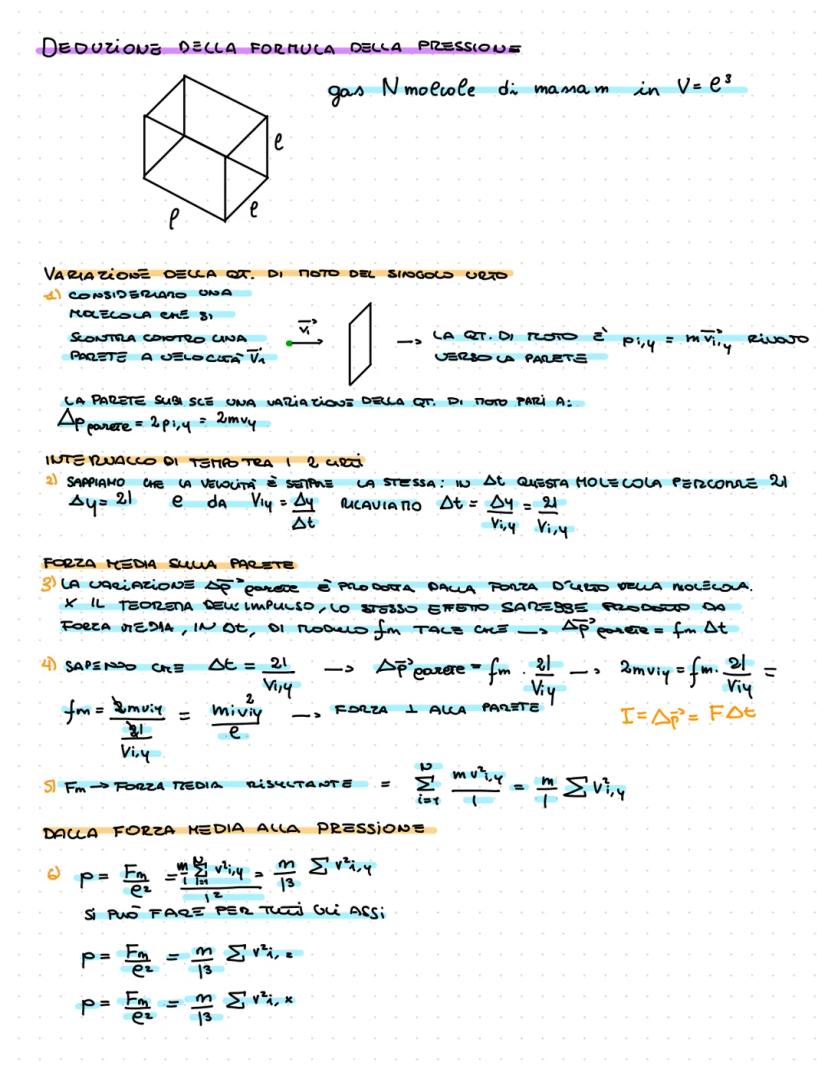 DEDUZIONE DELLA FORMULA DELLA PRESSIONE
gas N molecole di massa m in V = l³
l
l
l
VARIAZIONE DELLA QT. DI MOTO DEL SINGOLO URTO
1) CONSIDERIAMO UNA
MOLECOLA CHE SI
SCONTRA CONTRO UNA
PARETE A VELOCITÀ V⃗₁
v⃗ᵢ
→ LA QT. DI MOTO È pᵢ,y = m v⃗ᵢ,y RIVOLTO
VERSO LA PARETE
LA PARETE SUBISCE UNA VARIAZIONE DELLA QT. DI MOTO PARI A:
Δp parete = 2pᵢ,y = 2mvy
INTERVALLO DI TEMPO TRA I 2 URTI
2) SAPPIAMO CHE LA VELOCITÀ È SEMPRE LA STESSA: IN Δt QUESTA MOLECOLA PERCORRE 2l
Δy = 2l e da Vᵢy = Δy/Δt RICAVIAMO Δt = Δy/Vᵢ,y = 2l/Vᵢ,y
FORZA MEDIA SULLA PARETE
3) LA VARIAZIONE Δp⃗ parete È PRODOTTA DALLA FORZA D'URTO DELLA MOLECOLA.
X IL TEOREMA DELL'IMPULSO, LO STESSO EFFETO SAREBBE PRODOTTO DA
FORZA MEDIA, IN Δt, DI MODULO fm TALE CHE → Δp⃗ parete = fm Δt
4) SAPENDO CHE Δt = 2l/Vᵢ,y → Δp⃗ parete = fm · 2l/Vᵢy → 2mvᵢy = fm · 2l/Vᵢy =
fm = 2mvᵢy/(2l/Vᵢ,y) = mᵢvᵢy²/l → FORZA ⊥ ALLA PARETE
I = Δp⃗ = FΔt
5) Fm → FORZA MEDIA RISULTANTE = ∑ᵢ₌₁ᴺ mv²ᵢ,y/l = m/l ∑ v²ᵢ,y
DALLA FORZA MEDIA ALLA PRESSIONE
6) p = Fm/l² = (m/l ∑ᵢ₌₁ᴺ v²ᵢ,y)/l² = m/l³ ∑ v²ᵢ,y
SI PUÒ FARE PER TUTTI GLI ASSI
p = Fm/l² = m/l³ ∑ v²ᵢ,z
p = Fm/l² = m/l³ ∑ v²ᵢ,x